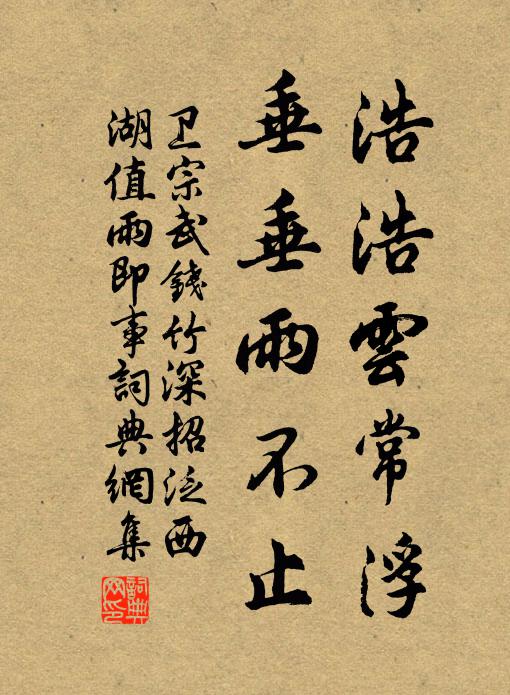 浩浩雲常浮
垂垂雨不止
卫宗武錢竹深招泛西
湖值雨即事詞典網集
詞典網印